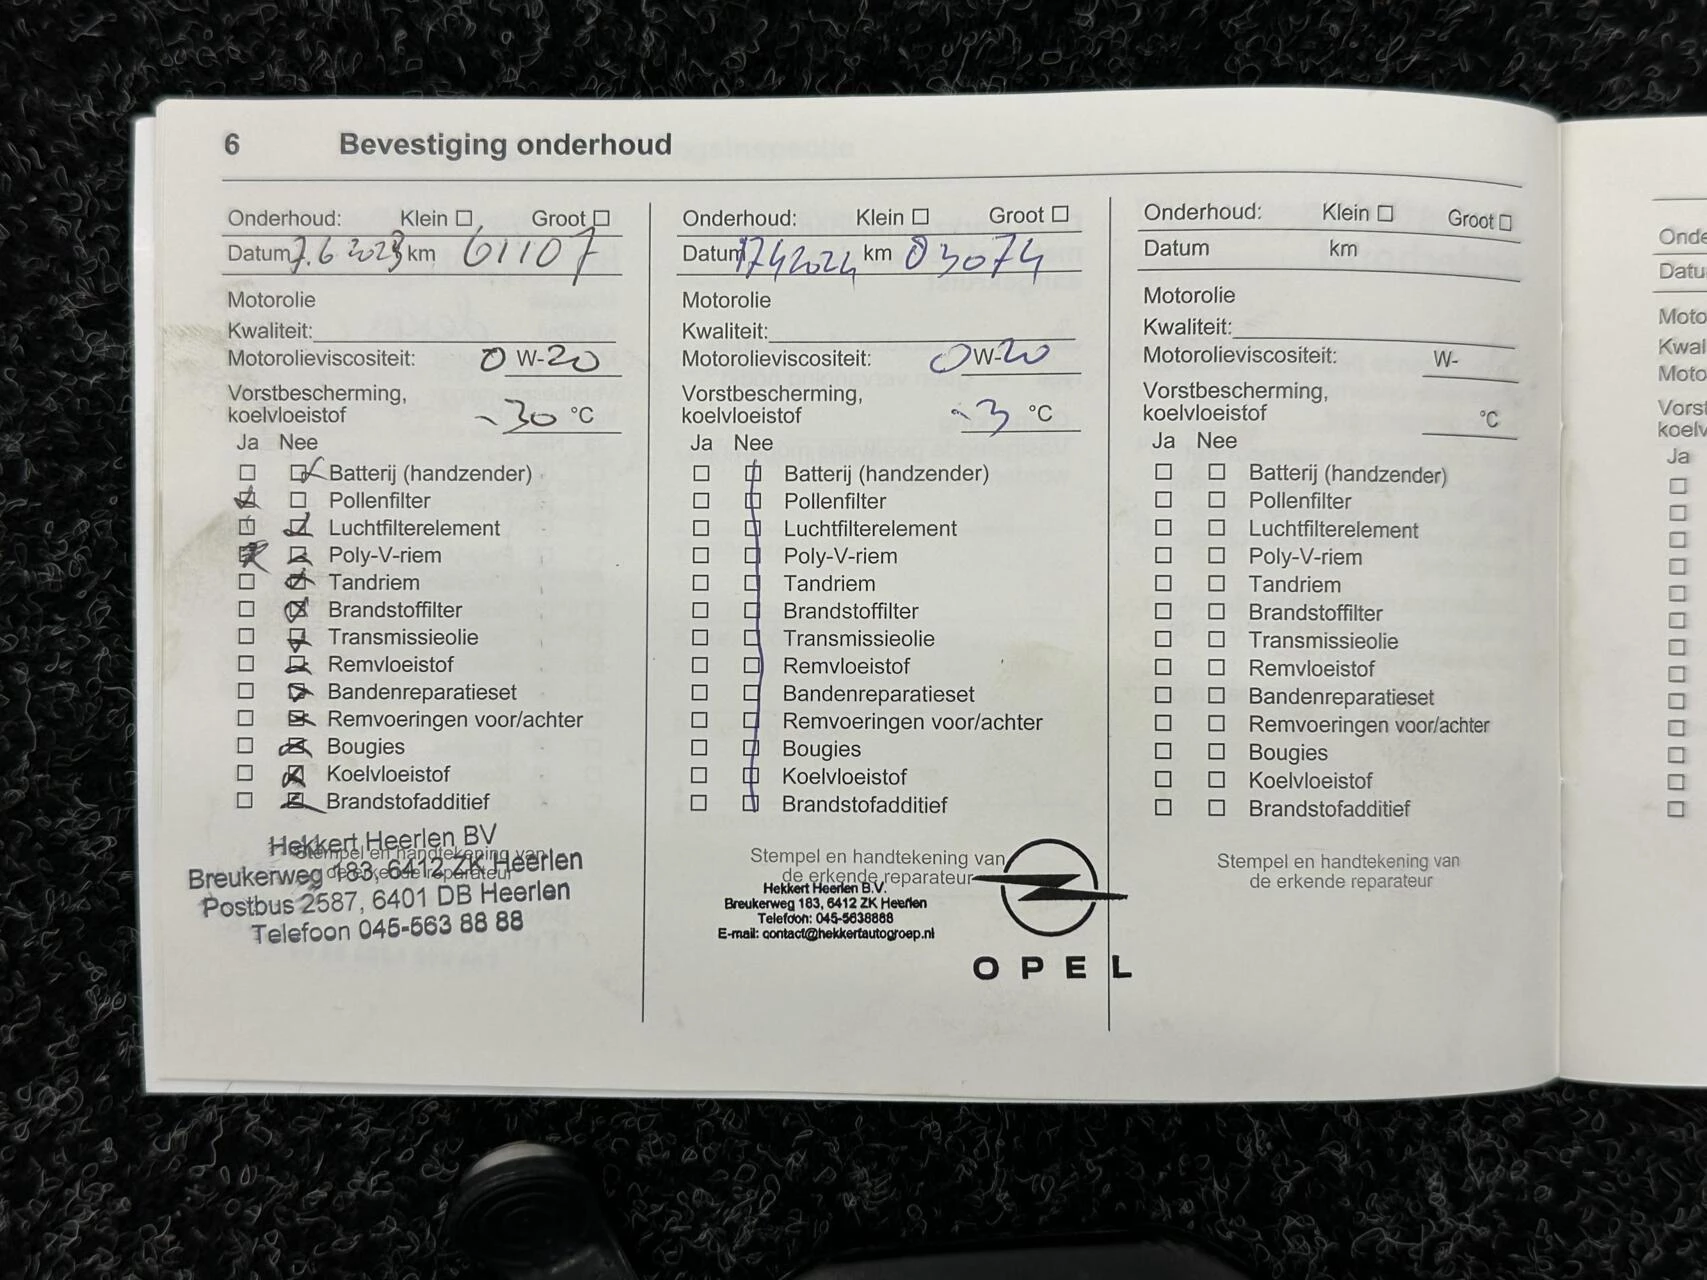 6 Bevestiging onderhoud
Onderhoud: Klein Groot
Datum 7.6 2023 km 61107
Motorolie
Kwaliteit:
Motorolieviscositeit: 0 W-20
Vorstbescherming,
koelvloeistof -30 °C
Ja Nee
Batterij (handzender)
Pollenfilter
Luchtfilterelement
Poly-V-riem
Tandriem
Brandstoffilter
Transmissieolie
Remvloeistof
Bandenreparatieset
Remvoeringen voor/achter
Bougies
Koelvloeistof
Brandstofadditief
Stempel en handtekening van
de erkende reparateur
Hekkert Heerlen BV
Breukerweg 183, 6412 ZK Heerlen
Postbus 2587, 6401 DB Heerlen
Telefoon 045-563 88 88
Onderhoud: Klein Groot
Datum 1742024 km 83074
Motorolie
Kwaliteit:
Motorolieviscositeit: 0W-20
Vorstbescherming,
koelvloeistof -3 °C
Ja Nee
Batterij (handzender)
Pollenfilter
Luchtfilterelement
Poly-V-riem
Tandriem
Brandstoffilter
Transmissieolie
Remvloeistof
Bandenreparatieset
Remvoeringen voor/achter
Bougies
Koelvloeistof
Brandstofadditief
Stempel en handtekening van
de erkende reparateur
Hekkert Heerlen B.V.
Breukerweg 183, 6412 ZK Heerlen
Telefoon: 045-5638888
E-mail: contact@hekkertautogroep.nl
OPEL
Onderhoud: Klein Groot
Datum km
Motorolie
Kwaliteit:
Motorolieviscositeit: W-
Vorstbescherming,
koelvloeistof °C
Ja Nee
Batterij (handzender)
Pollenfilter
Luchtfilterelement
Poly-V-riem
Tandriem
Brandstoffilter
Transmissieolie
Remvloeistof
Bandenreparatieset
Remvoeringen voor/achter
Bougies
Koelvloeistof
Brandstofadditief
Stempel en handtekening van
de erkende reparateur
Onde
Datu
Moto
Kwal
Moto
Vorst
koelv
Ja